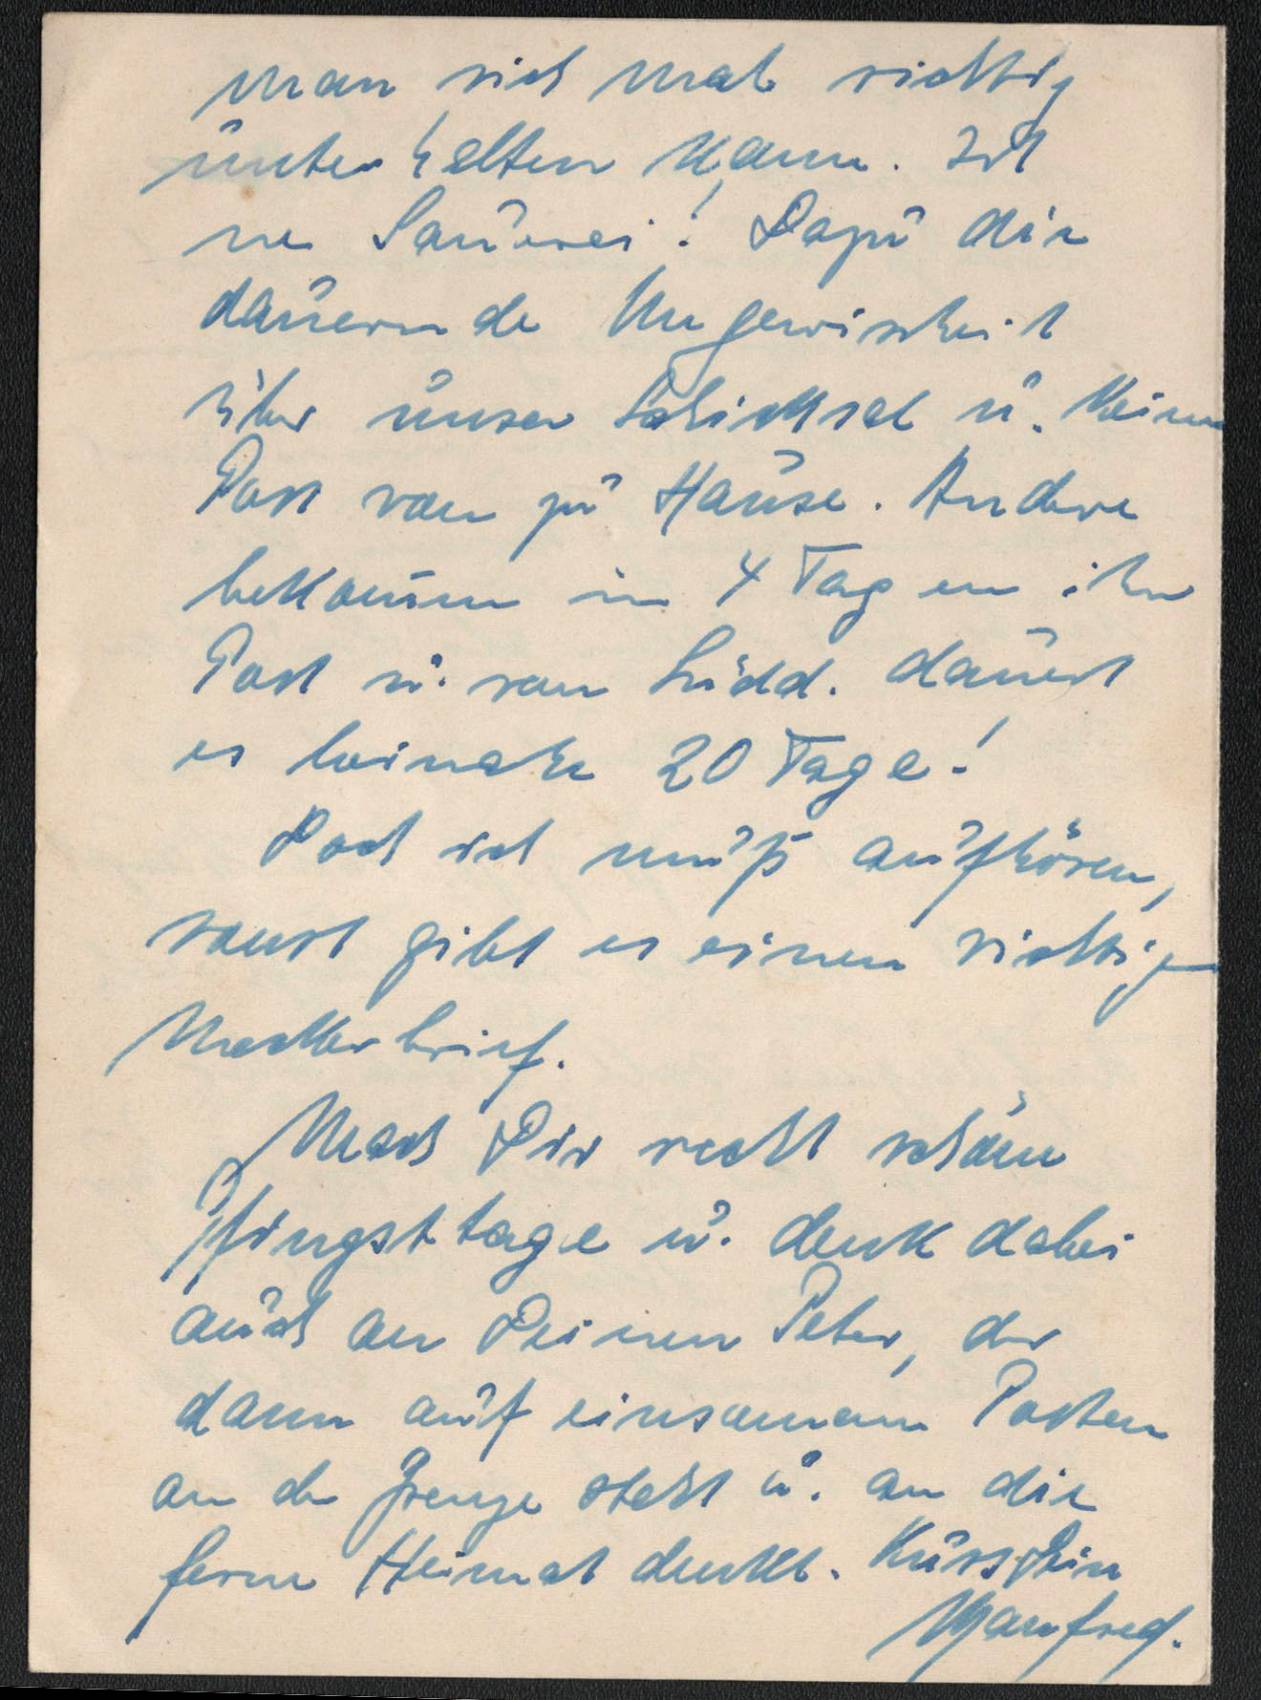 man sich mal richtig
unterhalten kann. Ist
ne Sauerei! Dazu die
dauernde Ungewissheit
über unser Schicksal u. keine
Post von zu Hause. Andere
bekommen in 4 Tagen ihre
Post u. von Südd. dauert
es beinahe 20 Tage!
Doch ich muß aufhören,
sonst gibt es einen richtigen
Meckerbrief.
Mach Dir recht schöne
Pfingsttage u. denk dabei
auch an Deinen Peter, der
dann auf einsamem Posten
an der Grenze steht u. an die
ferne Heimat denkt.
Manfred.